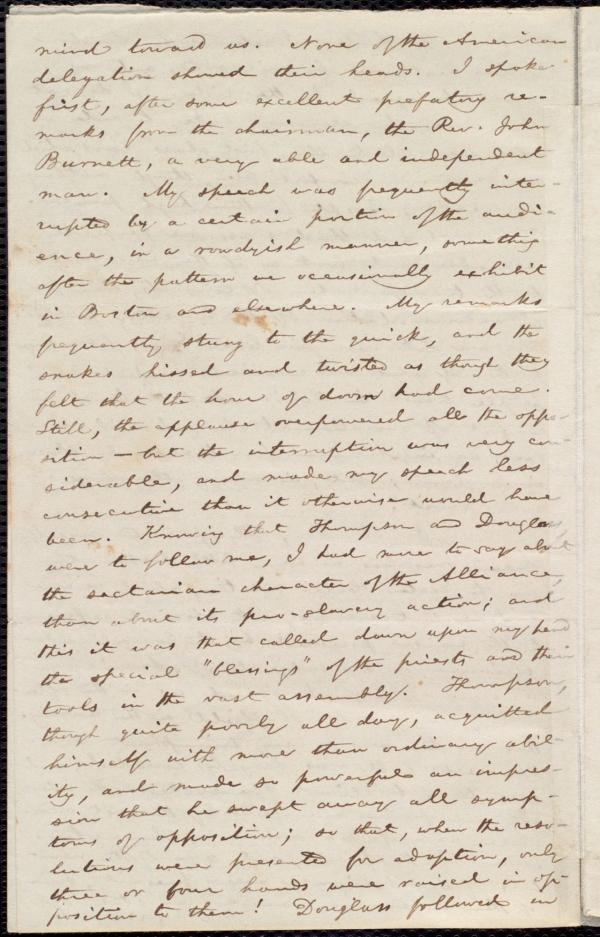 mind toward us. None of the American
delegation showed their heads. I spoke
first, after some excellent prefatory re-
marks from the chairman, the Rev. John
Burnett, a very able and independent
man. My speech was frequently inter-
rupted by a certain portion of the audi-
ence, in a rowdyish manner, something
after the pattern we occasionally exhibit
in Boston and elsewhere. My remarks
frequently stung to the quick, and the
snakes hissed and twisted as though they
felt that the hour of doom had come.
Still, the applause overpowered all the oppo-
sition — but the interruption was very con-
siderable, and made my speech less
consecutive than it otherwise would have
been. Knowing that Thompson and Douglass
were to follow me, I had more to say about
the sectarian character of the Alliance,
than about its pro-slavery action; and
this it was that called down upon my head
the special "blessings" of the priests and their
tools in the vast assembly. Thompson,
though quite poorly all day, acquitted
himself with more than ordinary abil-
ity, and made so powerful an impres-
sion that he swept away all symp-
toms of opposition; so that, when the reso-
lutions were presented for adoption, only
three or four hands were raised in op-
position to them! Douglass followed in